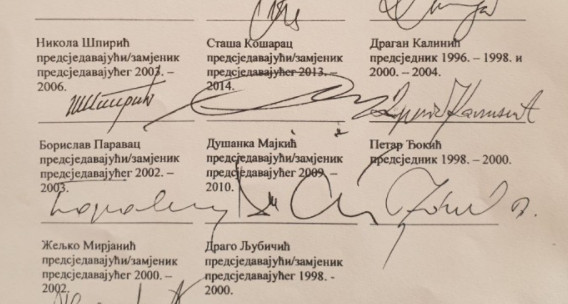 Никола Шпирић
предсједавајући/замјеник
предсједавајућег 2003. –
2006.
Сташа Кошарац
предсједавајући/замјеник
предсједавајућег 2013. –
2014.
Драган Калинић
предсједник 1996. – 1998. и
2000. – 2004.
Борислав Паравац
предсједавајући/замјеник
предсједавајућег 2002. –
2003.
Душанка Мајкић
предсједавајући/замјеник
предсједавајућег 2009. –
2010.
Петар Ђокић
предсједник 1998. – 2000.
Жељко Мирјанић
предсједавајући/замјеник
предсједавајућег 2000. –
2002.
Драго Љубичић
предсједавајући/замјеник
предсједавајућег 1998. -
2000.